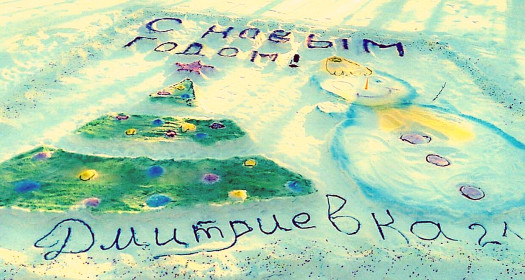 С новым
годом!
Дмитриевка